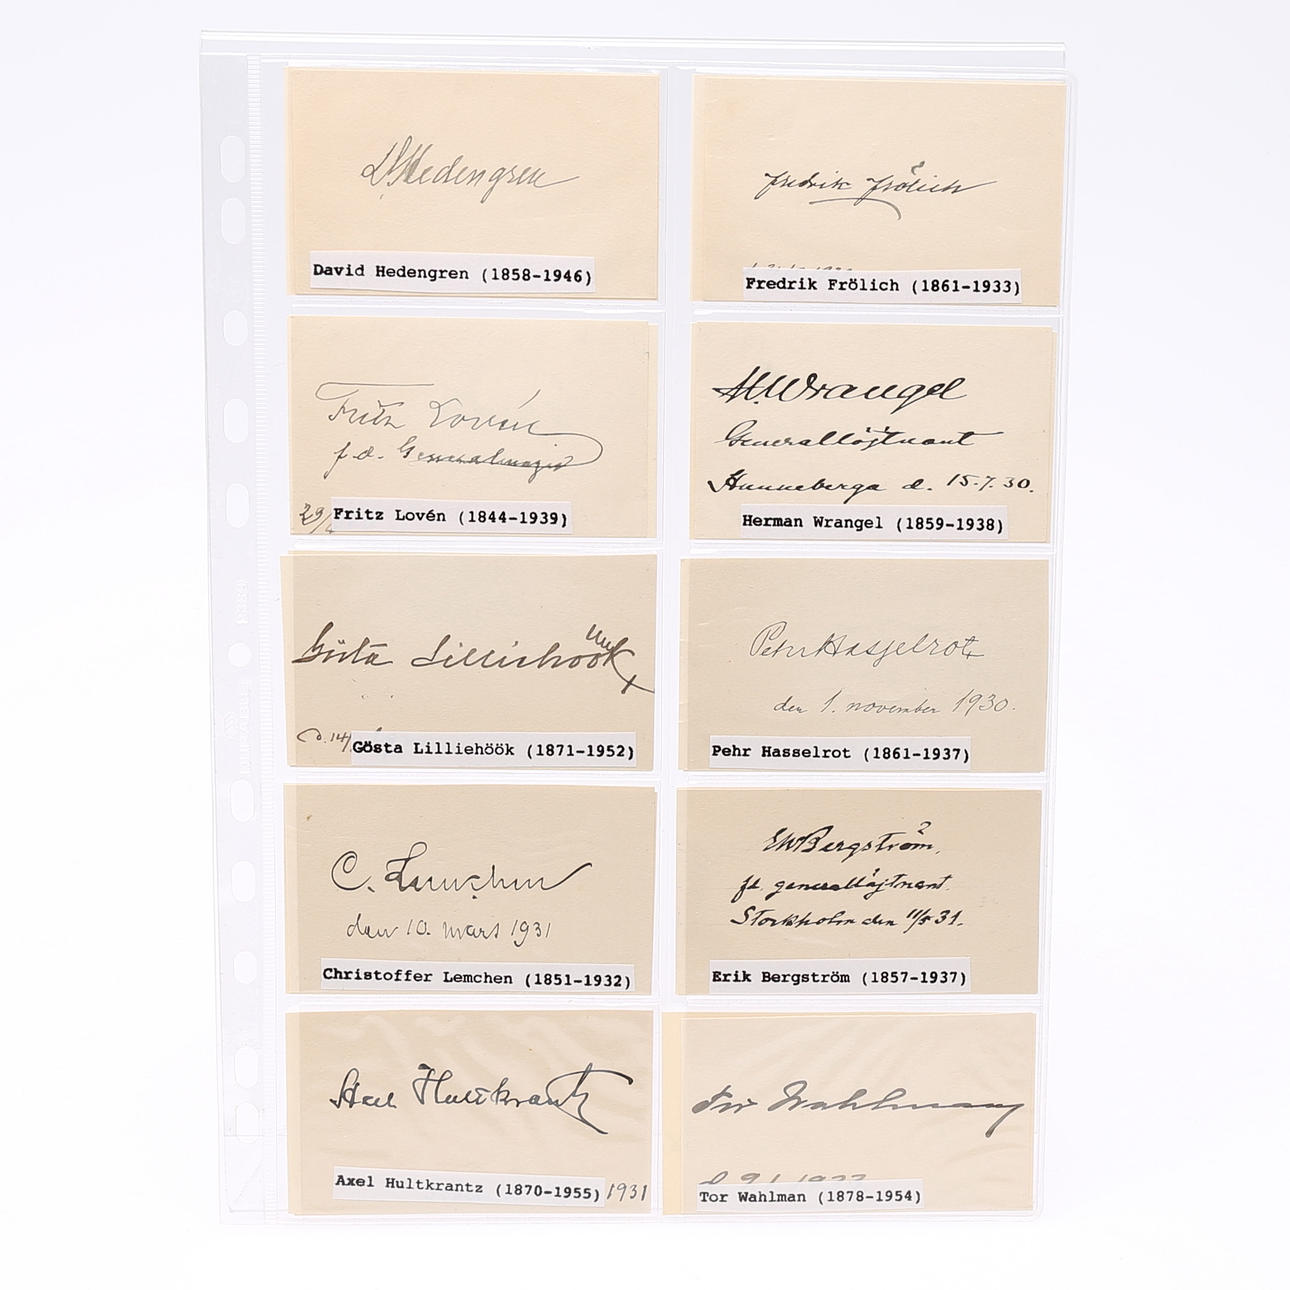 D Hedengren
David Hedengren (1858-1946)
Fredrik Frölich
Fredrik Frölich (1861-1933)
Fritz Lovén
f.d.
29/4
Fritz Lovén (1844-1939)
H. Wrangel
Generallöjtnant
Hunneberga d. 15.7.30.
Herman Wrangel (1859-1938)
Gösta Lilliehöök
d. 14/
Gösta Lilliehöök (1871-1952)
Pehr Hasselrot
den 1. november 1930.
Pehr Hasselrot (1861-1937)
C. Lemchen
den 10. mars 1931
Christoffer Lemchen (1851-1932)
EWBergström,
fd. generallöjtnant.
Stockholm den 11/5 31.
Erik Bergström (1857-1937)
Axel Hultkrantz
Axel Hultkrantz (1870-1955) 1931
Tor Wahlman
Tor Wahlman (1878-1954)